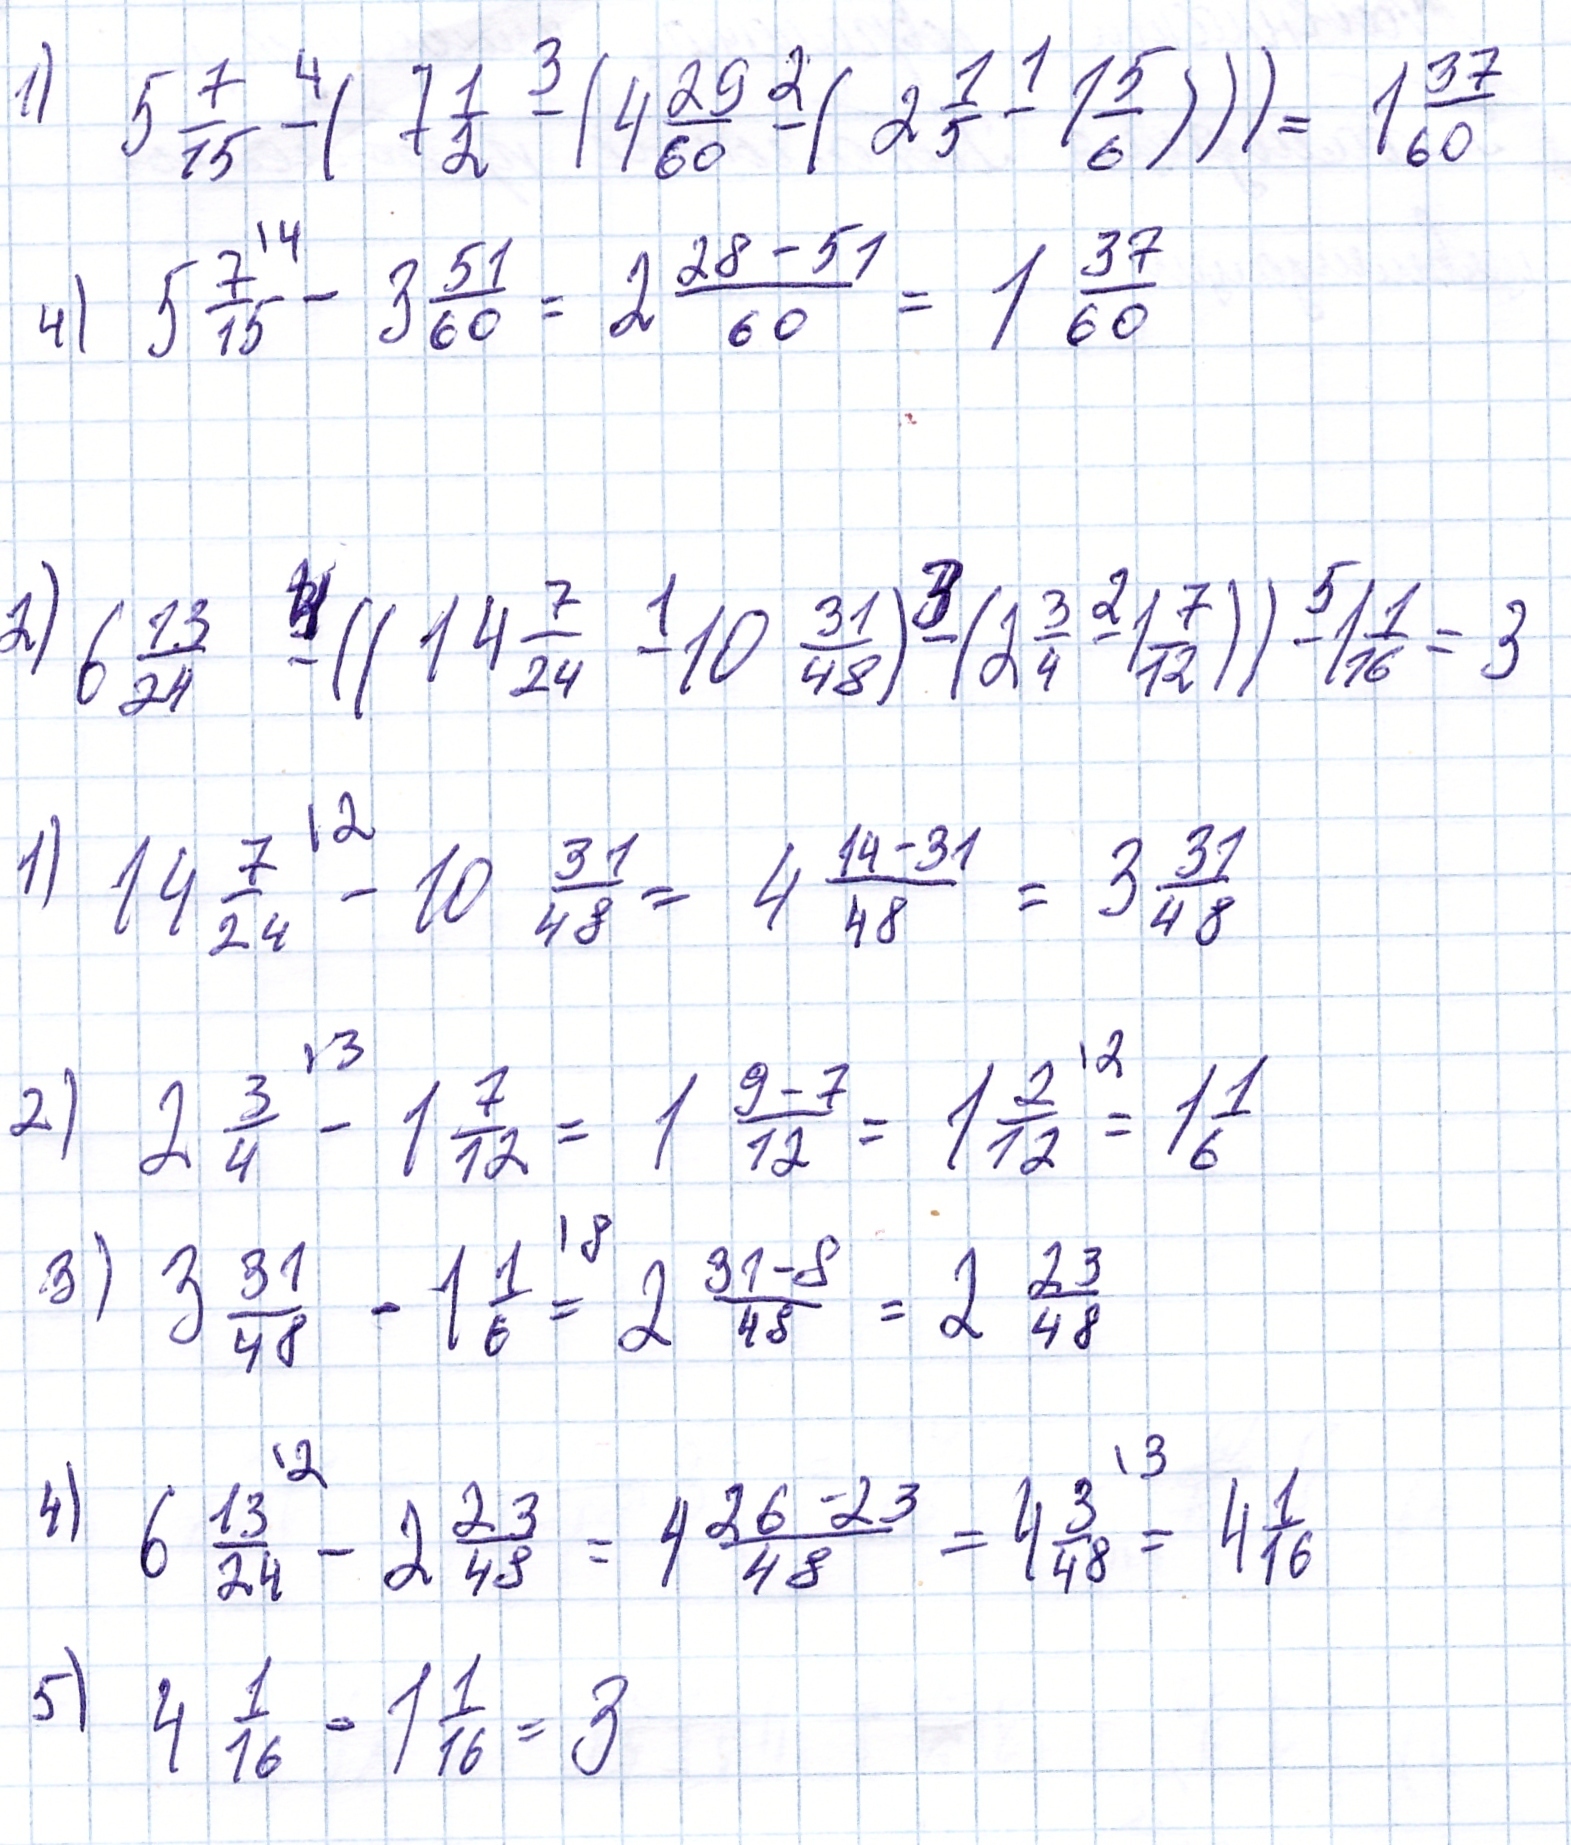 1) 5 7/15 -⁴ ( 7 1/2 -³ ( 4 29/60 -² ( 2 1/5 -¹ 1 5/6 ) ) ) = 1 37/60
4) 5 7/15 \4 - 3 51/60 = 2 (28-51)/60 = 1 37/60
2) 6 13/24 -⁴ ( ( 14 7/24 -¹ 10 31/48 ) -³ ( 2 3/4 -² 1 7/12 ) ) -⁵ 1 1/16 = 3
1) 14 7/24 \2 - 10 31/48 = 4 (14-31)/48 = 3 31/48
2) 2 3/4 \3 - 1 7/12 = 1 (9-7)/12 = 1 2/12 \2 = 1 1/6
3) 3 31/48 - 1 1/6 \8 = 2 (31-8)/48 = 2 23/48
4) 6 13/24 \2 - 2 23/48 = 4 (26-23)/48 = 4 3/48 \3 = 4 1/16
5) 4 1/16 - 1 1/16 = 3